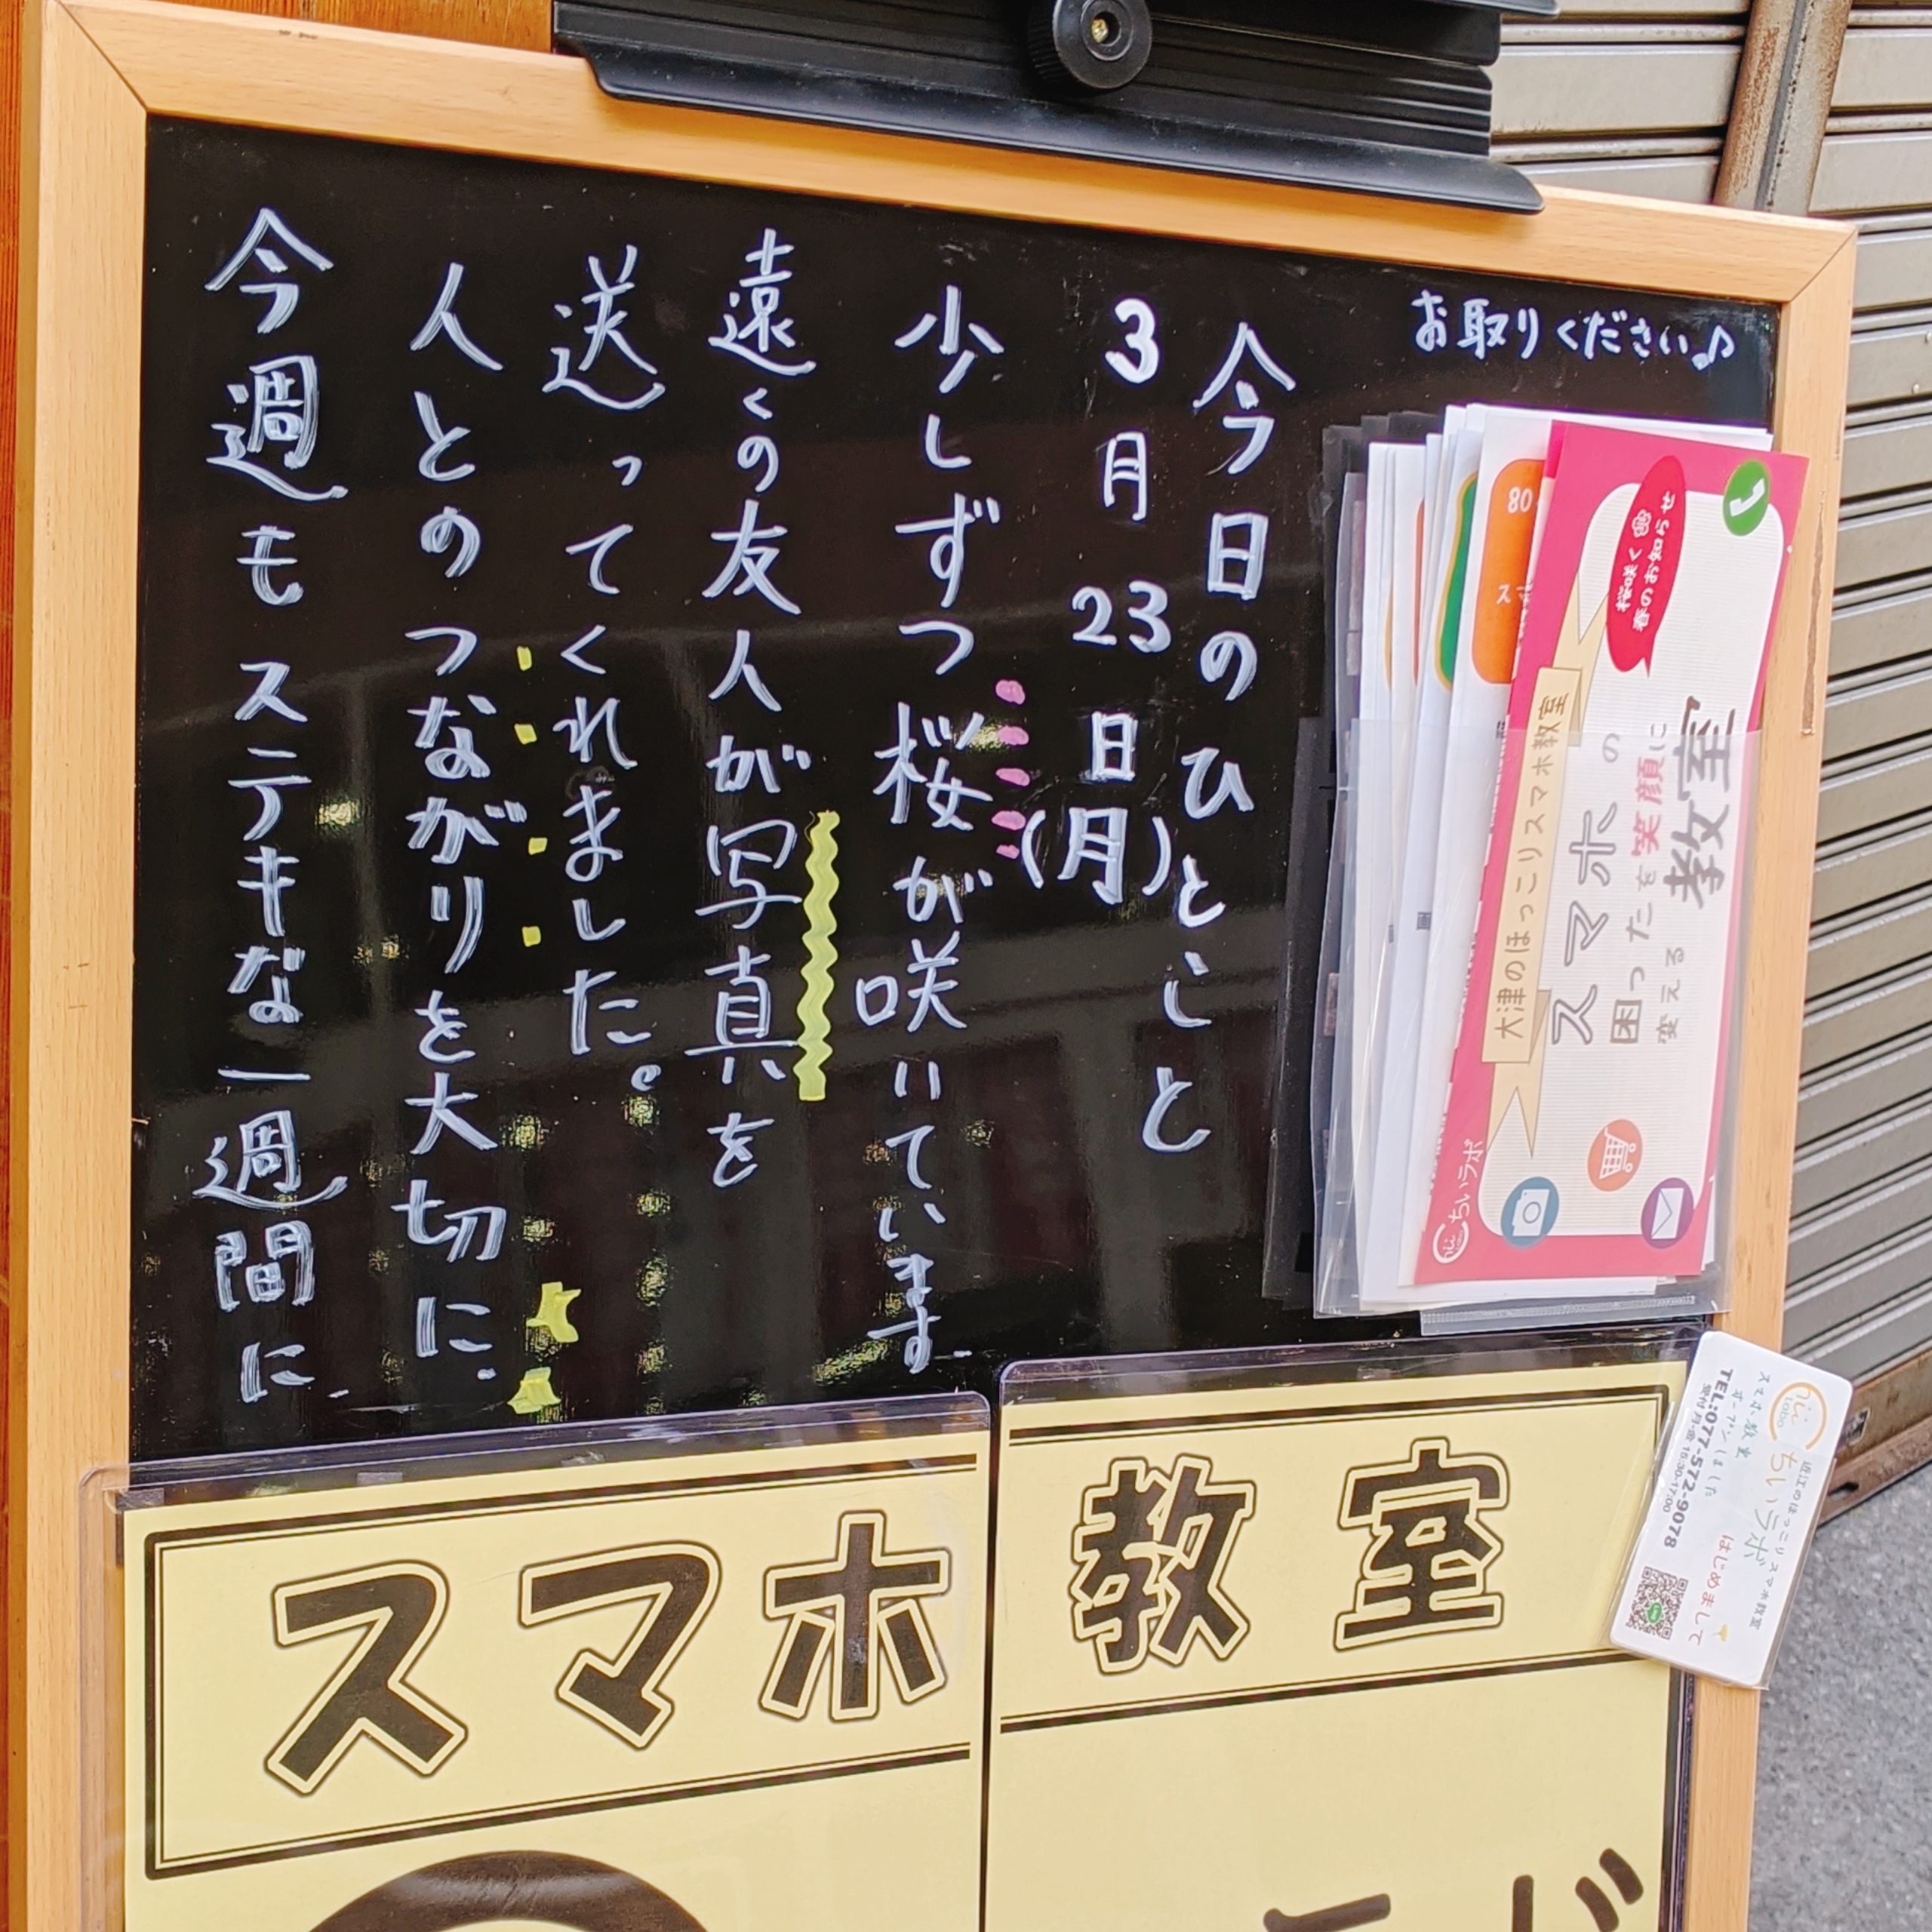 お取りください♪
今日のひとこと
3月23日(月)
少しずつ桜が咲いています
遠くの友人が写真を
送ってくれました。
人とのつながりを大切に
今週もステキな一週間に
桜咲く
春のお知らせ
大津のほっこりスマホ教室
スマホの
困ったを笑顔に
変える
教室
ちいラボ
80
スマホ教室
近江のほっこりスマホ教室
ちいラボ
はじめまして
スマホ教室
オープンしました
TEL:077-572-9078
受付 月-金 15:30-17:00